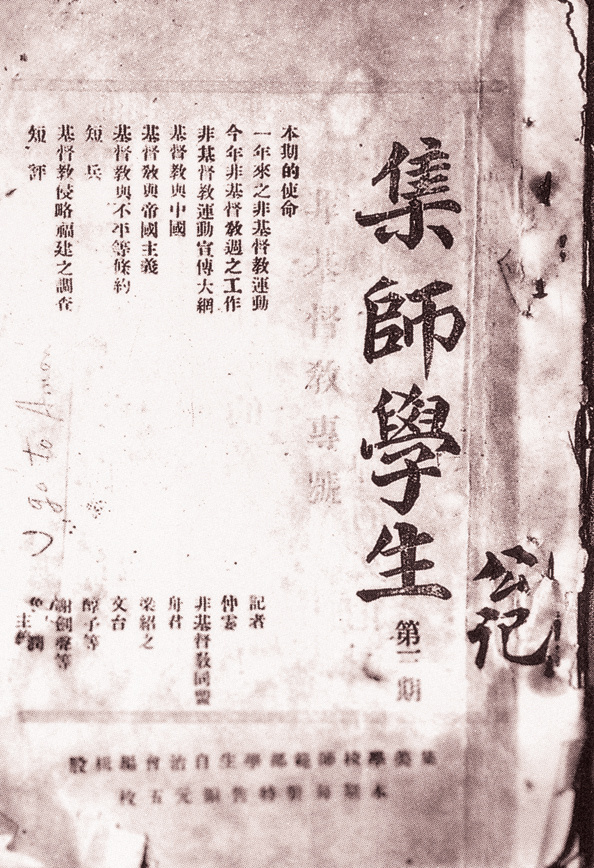 公记
集師學生 第三期
非基督教專號
本期的使命 記者
一年來之非基督教運動 仲雲
今年非基督教週之工作 非基督教同盟
非基督教運動宣傳大網
基督教與中國 舟君
基督教與帝國主義 梁紹之
基督教與不平等條約 文台
短兵 醇子等
基督教侵略福建之調查 謝創聲等
短評
go to Amoy
集美學校師範部學生自治會編輯股
本期每冊特售銀元五枚